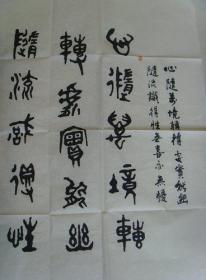 心隨萬境轉轉處實能幽
隨流認得性無喜亦無憂
心隨萬境轉
轉處實能幽
隨流認得性